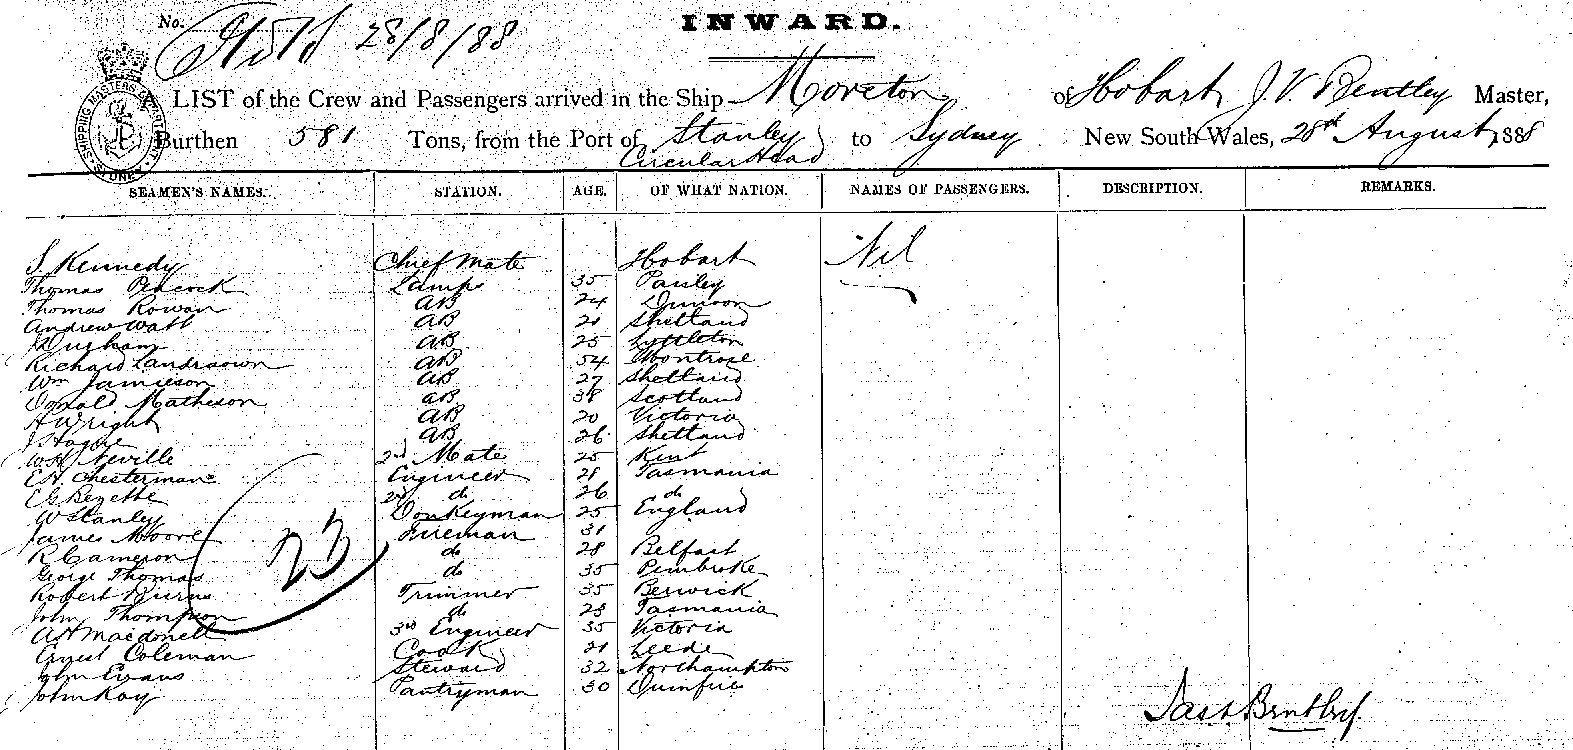 No.
28/8/88
INWARD.
A LIST of the Crew and Passengers arrived in the Ship Moreton of Hobart J. V. Bentley Master,
Burthen 581 Tons, from the Port of Stanley to Sydney New South Wales, 28th August 1888
Circular Head
SEAMEN'S NAMES. STATION. AGE. OF WHAT NATION. NAMES OF PASSENGERS. DESCRIPTION. REMARKS.
S. Kennedy Chief Mate Hobart Nil
Thomas Peacock Lamps 35 Paisley
Thomas Rowan AB 24 Dunoon
Andrew Watt AB 21 Shetland
Durham AB 25 Lyttleton
Richard AB 54 Montrose
Wm Jamieson AB 27 Shetland
Donald Matheson AB 38 Scotland
A Wright AB 20 Victoria
J Hague AB 26 Shetland
W.H. Neville 2nd Mate 25 Kent
E.A. Chesterman Engineer 28 Tasmania
E G Bezette 2nd do 26 do
W Stanley Donkeyman 25 England
James Moore Fireman 31
R Cameron do 28 Belfast
George Thomas do 35 Pembroke
Robert Burns Trimmer 35 Berwick
John Thompson do 23 Tasmania
A H Macdonell 3rd Engineer 35 Victoria
Ernest Coleman Cook 21 Leeds
John Evans Steward 32 Northampton
John Kay Pantryman 30 Dumfries
23
Jas. V. Bentley